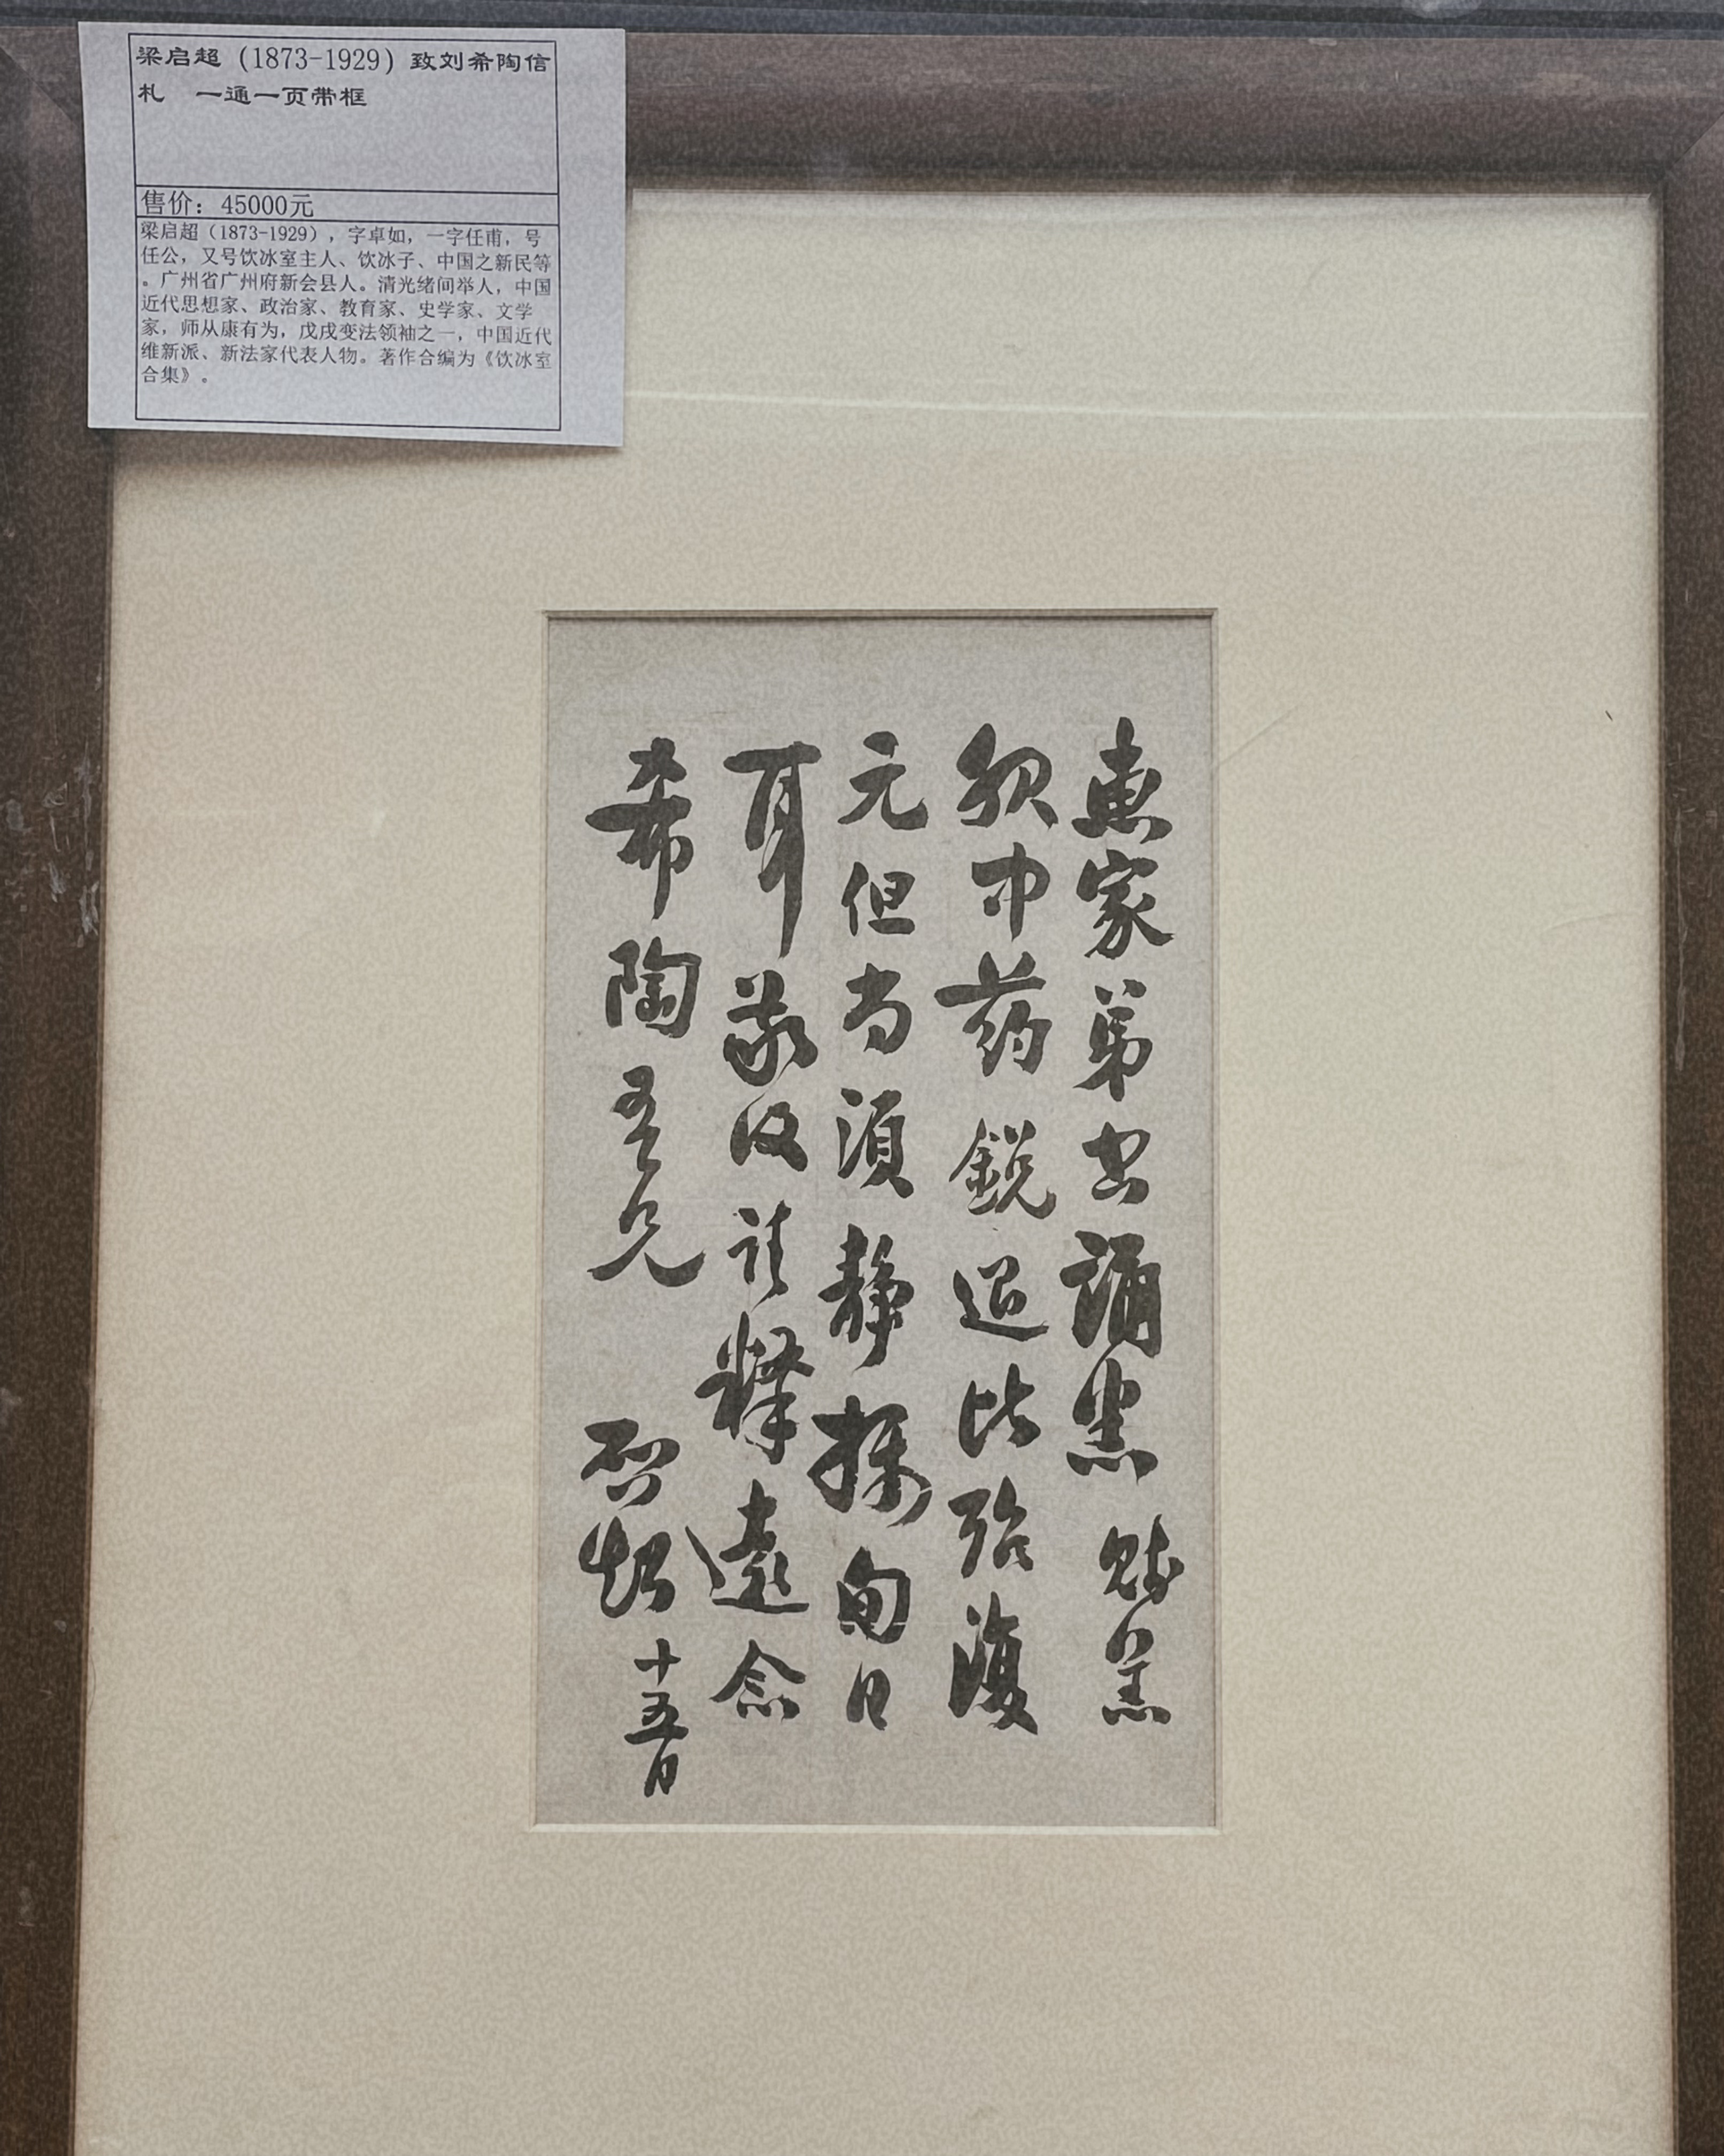 梁启超 (1873-1929) 致刘希陶信
札　一通一页带框
售价：45000元
梁启超（1873-1929），字卓如，一字任甫，号
任公，又号饮冰室主人、饮冰子、中国之新民等
。广州省广州府新会县人。清光绪间举人，中国
近代思想家、政治家、教育家、史学家、文学
家，师从康有为，戊戌变法领袖之一，中国近代
维新派、新法家代表人物。著作合编为《饮冰室
合集》。
惠家弟书誦悉賤恙
服中药銳退比殆復
元但尚須静攝旬日
耳敬復請釋遠念
希陶吾兄　啟超　十五日